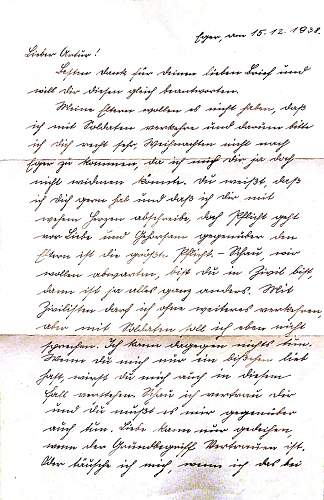 Eger, am 15.12.1938.
Lieber Artur!
Besten Dank für Deinen lieben Brief und
will Dir diesen gleich beantworten.
Meine Eltern wollen es nicht haben, daß
ich mit Soldaten verkehre und darum bitte
ich Dich recht sehr, Weihnachten nicht nach
Eger zu kommen, da ich mich Dir ja doch
nicht widmen könnte. Du weißt, daß
ich Dich gern hab und daß ich Dir mit
wehem Herzen abschreibe, doch Pflicht geht
vor Liebe und Gehorsam gegenüber den
Eltern ist die größte Pflicht. - Schau, wir
wollen abwarten, bist Du in Zivil bist,
dann ist ja alles ganz anders. Mit
Zivilisten darf ich ohne weiteres verkehren,
aber mit Soldaten soll ich eben nicht
sprechen. Ich kann dagegen nichts tun.
Wenn Du mich nur ein bißchen lieb
hast, wirst Du mich auch in diesem
Fall verstehen. Schau ich vertrau Dir
und Du mußt es mir gegenüber
auch tun. Liebe kann nur gedeihen,
wenn der Grundbegriff Vertrauen ist.
Oder täusche ich mich, wenn ich das bei